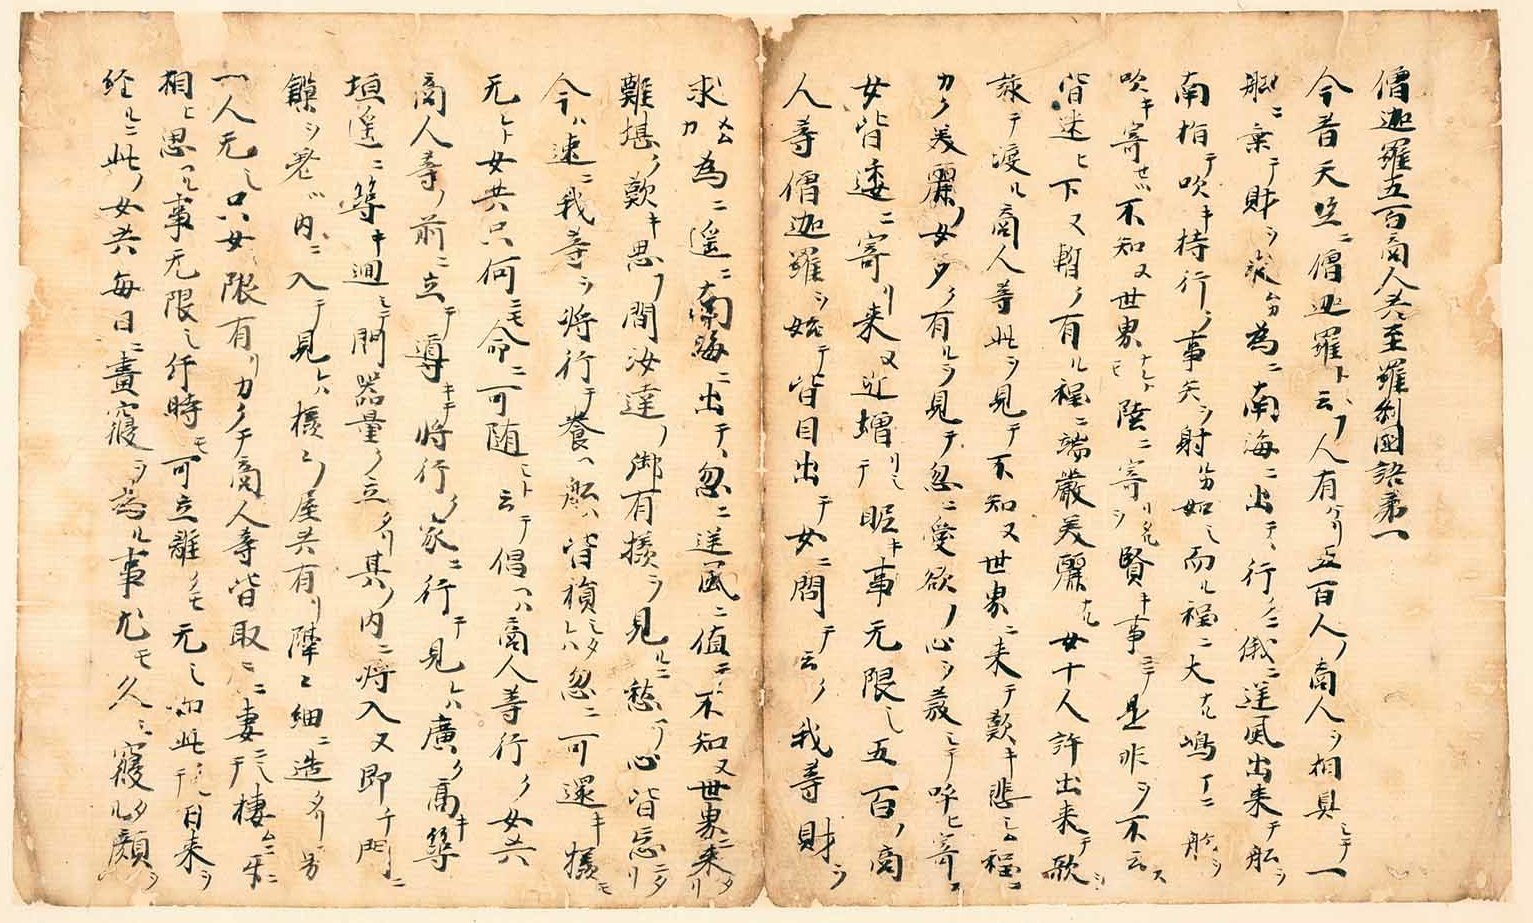 僧迦羅五百商人共至羅刹國語第一
今昔天竺ニ僧迦羅ト云フ人有ケリ五百人ノ商人ヲ相具シテ一
船ニ乗テ財ヲ求ムカ為ニ南海ニ出テ行クニ俄ニ逆風出来テ船ヲ
南指テ吹キ持行ク事矢ヲ射カ如シ而ル程ニ大ナル嶋ニ船ヲ
吹キ寄セツ不知ヌ世界ナレトモ陸ニ寄リタルヲ賢キ事ニシテ是非ヲ不云ス
皆迷ヒ下ヌ暫ク有ル程ニ端嚴美麗ナル女十人許出来テ歌ヲ
詠テ渡ル商人等此ヲ見テ不知ヌ世界ニ来テ歎キ悲シム程ニ
カク美麗ノ女多ク有ルヲ見テ忽ニ愛欲ノ心ヲ發シテ呼ヒ寄ス
女皆透ニ寄リ来ヌ近増リシテ眤キ事无限シ五百ノ商
人等僧迦羅ヲ始テ皆目出テ女ニ問テ云ク我等財ヲ
求ムカ為ニ遥ニ南海ニ出テ忽ニ逆風ニ値テ不知ヌ世界ニ来タリ
難堪ク歎キ思フ間汝達ノ御有様ヲ見ルニ愁ノ心皆忘ニタリ
今ハ速ニ我等ヲ将行テ養ヘ船ハ皆損シタレハ忽ニ可還キ様モ
无シト女共只何ニモ命ニ可随シト云テ倡ヘハ商人等行ク女共
商人等ノ前ニ立テ導キテ将行ク家ニ行テ見レハ廣ク高キ築
垣遥ニ築キ廻シテ門器量ク立タリ其ノ内ニ将入ヌ即チ門ニ
鏁ヲ差ツ内ニ入テ見レハ様々ノ屋共有リ隔々細ニ造タリ男
一人无シ只女ノ限有リカクテ商人等皆取々ニ妻ニシテ棲ムニ互ニ
相ヒ思ヘル事无限シ片時モ可立離クモ无シ如此テ日来ヲ
経ルニ此ノ女共毎日ニ晝寢ヲ為ル事尤モ久シ寢タル顔ヲ